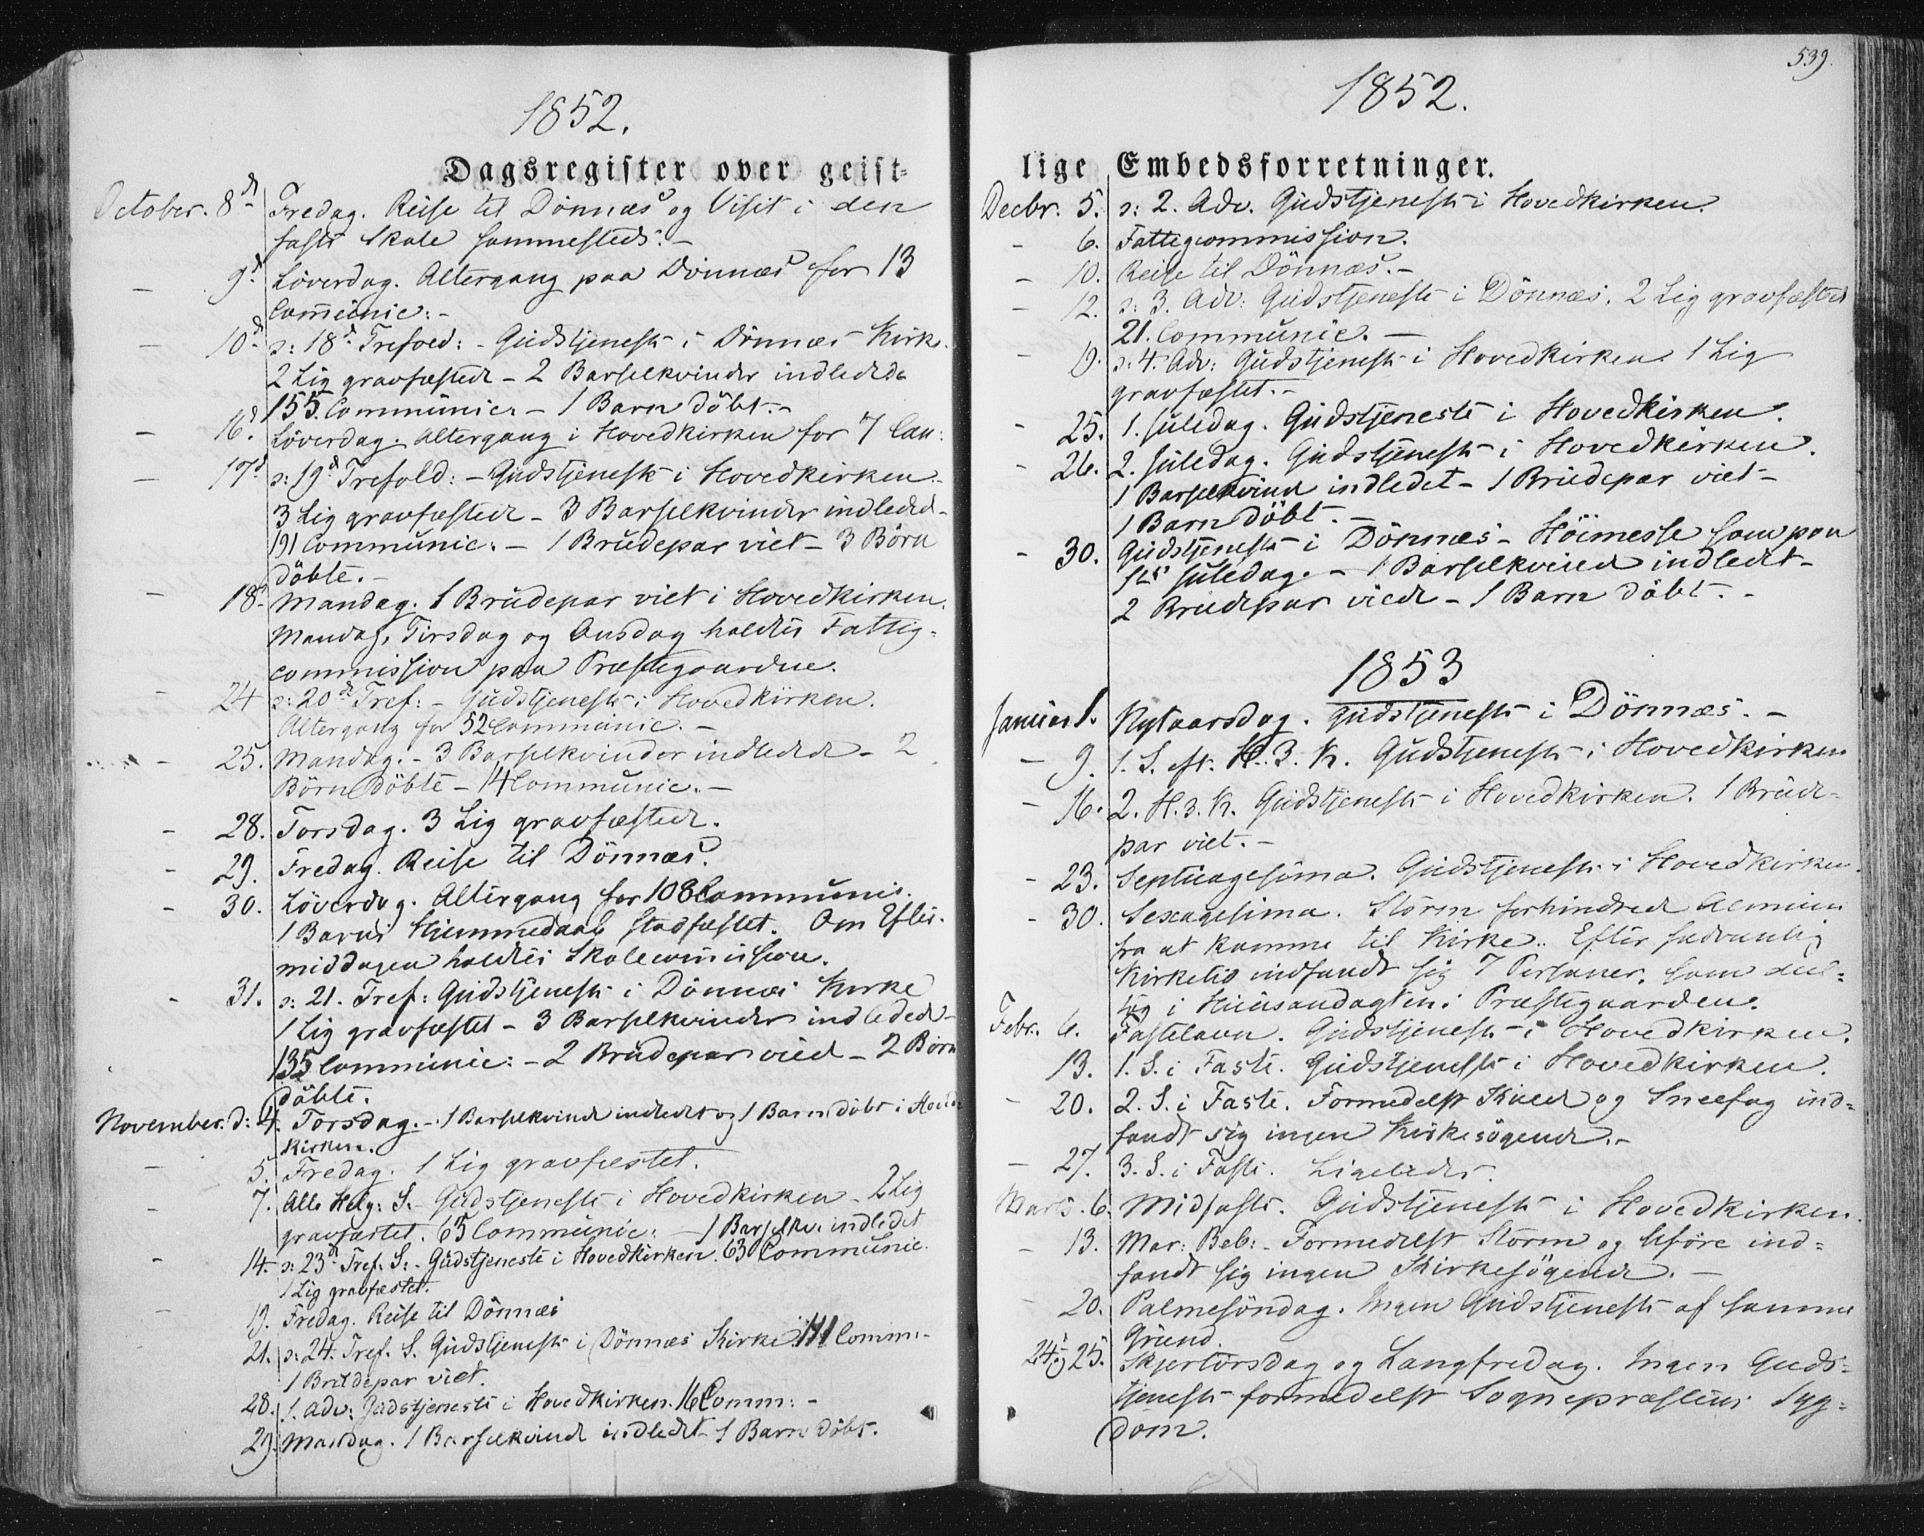 1852.
Dagsregister over geist-
October. 8d Fredag. Reise til Dønnæs og Visit i den
faste Skole sammesteds.-
- 9d Løverdag. Altergang paa Dönnæs for 13
Comunic:-
- 10d s: 18d Trefold:- Gudstjeneste i Dönnæs Kirke.
2 Lig gravfæstede - 2 Barselkvinder indledede
155 Communic: - 1 Barn döbt.-
- 16d. Løverdag. Altergang i Hovedkirken for 7 Com:
- 17d s: 19d Trefold: - Gudstjeneste i Hovedkirken.
3 Lig gravfæstede - 3 Barselkvinder indledede-
191 Communic: - 1 Brudepar viet - 3 Börn
döbte.-
- 18d. Mandag. 1 Brudepar viet i Hovedkirken.
Mandag, Tirsdag og Onsdag holdtes Fattig-
commission paa Præstegaarden.
- 24 s: 20d Tref: - Gudstjeneste i Hovedkirken.
Altergang for 52 Communic.-
- 25. Mandag. - 3 Barselkvinder indledede - 2
Börn Döbte - 14 Communic.-
- 28. Torsdag. 3 Lig gravfæstede.
- 29. Fredag. Reise til Dönnæs.
- 30. Løverdag. Altergang for 108 Communic.
1 Barns Hjemmedaab stadfæstet. Om Efter-
middagen holdtes Skolecommission.
- 31. s: 21. Tref: Gudstjeneste i Dönnæs Kirke
1 Lig gravfæstet - 3 Barselkvinder indledede-
135 Communic: - 2 Brudepar viede - 2 Börn
döbte.
November. d: 4. Torsdag. - 1 Barselkvinde indledet og 1 Barn döbt i Hoved-
kirken.
- 5. Fredag. 1 Lig gravfæstet.
- 7. Alle Helg: S.- Gudstjeneste i Hovedkirken - 2 Lig
gravfæstet. 65 Communic: - 1 Barselkv. indledet
- 14. s: 23d Tref. S:- Gudstjeneste i Hovedkirken. 63 Communic.
1 Lig gravfæstet.
19. Fredag. Reise til Dönnæs
21. s: 24. Tref. S. Gudstjeneste i Dönnæs Kirke 111 Comm:-
1 Brudepar viet.
28. 1. Adv: Gudstjeneste i Hovedkirken. 16 Comm: -
29. Mandag. 1 Barselkvinde indledet - 1 Barn Döbt.
539.
1852.
lige Embedsforretninger.
Decbr. 5. s: 2. Adv. Gudstjeneste i Hovedkirken.
- 6. Fattigcommission.
- 10. Reise til Dönnæs.-
- 12. s: 3. Adv: Gudstjeneste i Dönnæs. 2 Lig gravfæstede
21. Communic. -
- 19. s: 4. Adv: Gudstjeneste i Hovedkirken 1 Lig
gravfæstet.-
- 25. 1. Juledag. Gudstjeneste i Hovedkirken.
- 26. 2. Juledag. Gudstjeneste i Hovedkirken.
1 Barselkvinde indledet - 1 Brudepar viet -
1 Barn Döbt. -
- 30. Gudstjeneste i Dönnæs - Höimesse som paa
1ste Juledag. - 1 Barselkvinde indledet-
2 Brudepar viede - 1 Barn döbt. -
1853
Januar 1. Nytaarsdag. Gudstjeneste i Dönnæs. -
- 9. 1. S. eft. H. 3. K. Gudstjeneste i Hovedkirken
- 16. 2. H. 3. K. Gudstjeneste i Hovedkirken. 1 Brude-
par viet. -
- 23. Septuagesima. Gudstjeneste i Hovedkirken.
- 30. Sexagesima. Storm forhindrede Almuen
fra at komme til Kirke. Efter sædvanlig
Kirketid indfandt sig 7 Personer, som deel-
tog i Huusandagten i Præstegaarden.
Febr. 6. Fastelavn. Gudstjeneste i Hovedkirken.
13. 1. S. i Faste. Gudstjeneste i Hovedkirken.
- 20. 2. S. i Faste. Formedelst Kulde og Sneefog ind-
fandt sig ingen Kirkesögende.-
- 27. 3. S. i Faste. Ligeledes.
Marts. 6. Midfaste. Gudstjeneste i Hovedkirken.
- 13. Mar: Beb:- Formedelst Storm og Uföre ind-
fandt sig ingen Kirkesögende. -
- 20. Palmesöndag. Ingen Gudstjeneste af samme
Grund.
24. og 25. Skjertorsdag og Langfredag. Ingen Guds-
tjeneste formedelst Sognepræstens Syg-
dom.